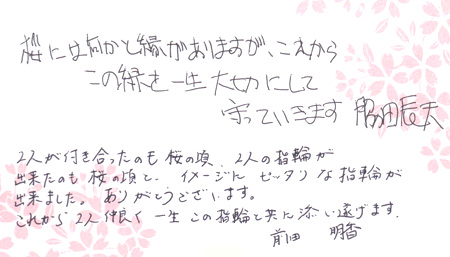 桜には何かと縁がありますが、これから
この縁を一生大切にして
守っていきます 勝田辰夫
2人が付き合ったのも桜の頃、2人の指輪が
出来たのも桜の頃と、イメージにピッタリな指輪が
出来ました。ありがとうございます。
これから2人仲良く一生この指輪と共に添い遂げます。
前田 明香